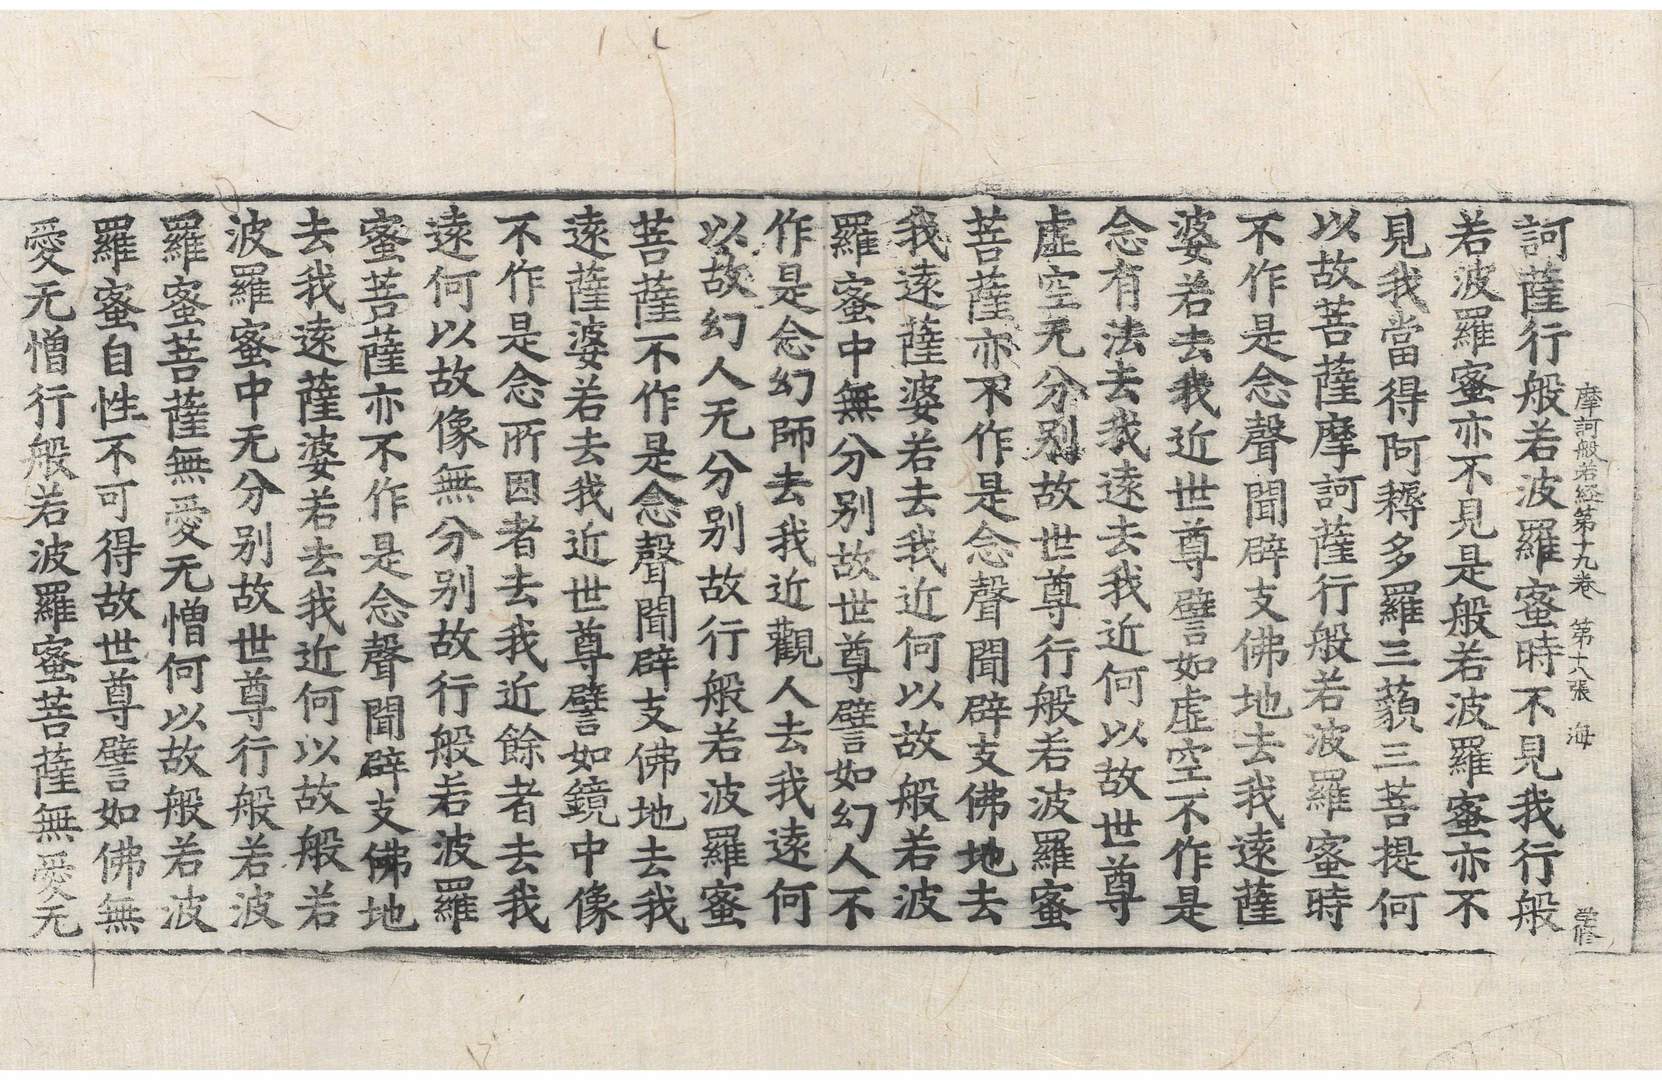 摩訶般若經第十九卷　第十八張　海
訶薩行般若波羅蜜時不見我行般
若波羅蜜亦不見是般若波羅蜜亦不
見我當得阿耨多羅三藐三菩提何
以故菩薩摩訶薩行般若波羅蜜時
不作是念聲聞辟支佛地去我遠薩
婆若去我近世尊譬如虛空不作是
念有法去我遠去我近何以故世尊
虛空无分別故世尊行般若波羅蜜
菩薩亦不作是念聲聞辟支佛地去
我遠薩婆若去我近何以故般若波
羅蜜中無分別故世尊譬如幻人不
作是念幻師去我近觀人去我遠何
以故幻人无分別故行般若波羅蜜
菩薩不作是念聲聞辟支佛地去我
遠薩婆若去我近世尊譬如鏡中像
不作是念所因者去我近餘者去我
遠何以故像無分別故行般若波羅
蜜菩薩亦不作是念聲聞辟支佛地
去我遠薩婆若去我近何以故般若
波羅蜜中无分別故世尊行般若波
羅蜜菩薩無愛无憎何以故般若波
羅蜜自性不可得故世尊譬如佛無
愛无憎行般若波羅蜜菩薩無愛无